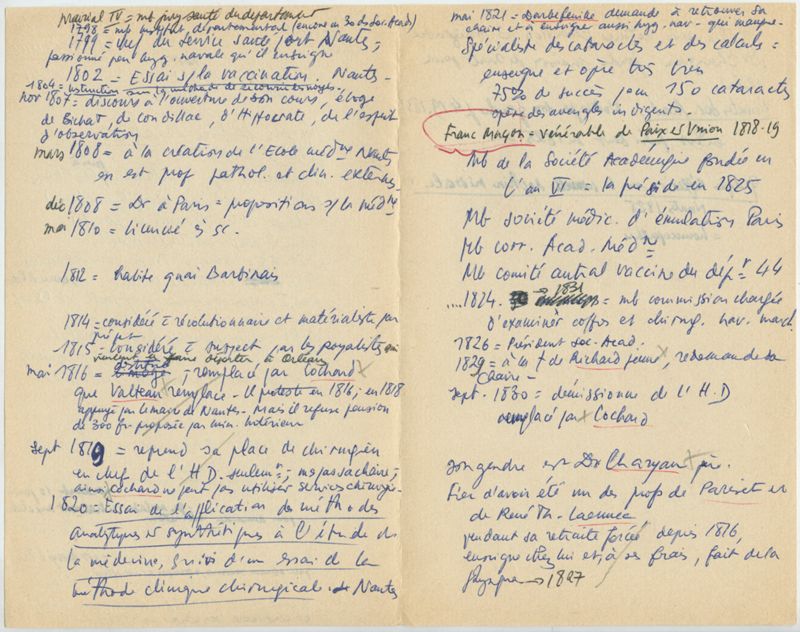 Prairial IV = mb jury santé du département
1798 = mb Institut départemental (encore en 30 de Soc. Acad)
1799 = chef du service santé port Nantes ;
passionné par hyg. navale qu'il enseigne
1802 = Essai s/la vaccination. Nantes -
1804 = instruction sur la méthode de secourir les noyés -
nov 1807 = discours à l'ouverture de son cours, éloge
de Bichat, de Condillac, d'Hippocrate, de l'esprit
d'observation
mars 1808 = à la création de l'Ecole médne Nantes
en est prof pathol. et clin. externes -
déc 1808 = Dr à Paris = propositions s/la médne
mai 1810 = licencié ès sc.
1812 = habite quai Barbinais
1814 = considéré = révolutionnaire et matérialiste par
préfet
1815 = considéré = suspect par les royalistes qui
veulent le faire déporter à Orléans
mai 1816 = destitué ; remplacé par Cochard
que Valteau remplace - Il proteste en 1816 ; en 1818
appuyé par le maire de Nantes. Mais il refuse pension
de 300 fr. proposée par min. Intérieur
sept 1819 = reprend sa place de chirurgien
en chef de l'H.D. seulemt ; mais pas sa chaire ;
ainsi Cochard ne peut pas utiliser services chirurgie -
1820 - Essai de l'application des méthodes
analytiques et synthétiques à l'étude de
la médecine, suivi d'un essai de la
méthode clinique chirurgicale. de Nantes
mai 1821 = Darbefeuille demande à retrouver sa
chaire et à enseigner aussi hyg. nav - qui manque.
Spécialiste des cataractes et des calculs =
enseigne et opère très bien
75% de succès pour 150 cataractes
opère des aveugles indigents.
Franc Maçon = vénérable de Paix et Union 1818-19
Mb de la Société Académique fondée en
l'an VI = la préside en 1825
Mb société médic. d'émulation Paris
Mb corr. Acad. Médne
Mb comité central vaccine du dépt 44
.... 1824. → 1831 = mb commission chargée
d'examiner coffres et chirurg. nav. march.
1826 = Président Soc. Acad.
1829 = à la † de Richard jeune, redemande sa
chaire -
sept. 1830 = démissionne de l'H.D
remplacé par Cochard
son gendre est Dr Charyau père.
Fier d'avoir été un des profs de Pariset et
de René Th. Laennec
pendant sa retraite forcée depuis 1816,
enseigne chez lui et à ses frais, fait de la
→ 1827